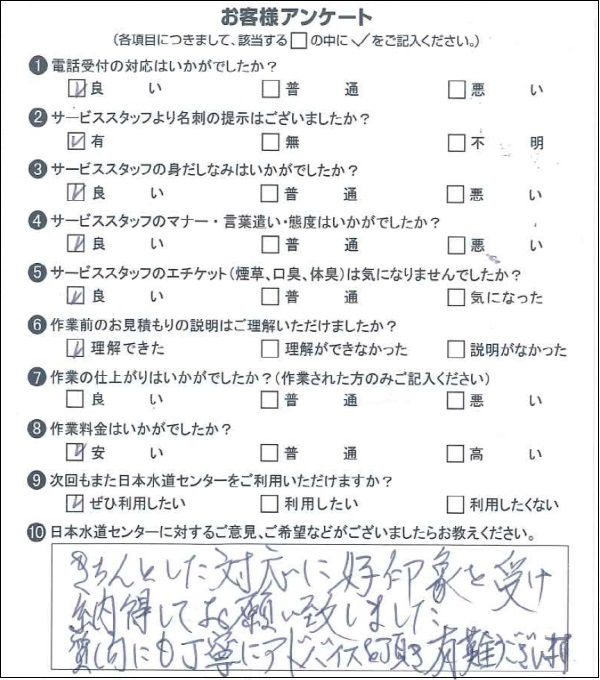 お客様アンケート
(各項目につきまして、該当する□の中に✓をご記入ください。)
❶ 電話受付の対応はいかがでしたか?
☑良い □普通 □悪い
❷ サービススタッフより名刺の提示はございましたか?
☑有 □無 □不明
❸ サービススタッフの身だしなみはいかがでしたか?
☑良い □普通 □悪い
❹ サービススタッフのマナー・言葉遣い・態度はいかがでしたか?
☑良い □普通 □悪い
❺ サービススタッフのエチケット(煙草、口臭、体臭)は気になりませんでしたか?
☑良い □普通 □気になった
❻ 作業前のお見積もりの説明はご理解いただけましたか?
☑理解できた □理解ができなかった □説明がなかった
❼ 作業の仕上がりはいかがでしたか?(作業された方のみご記入ください)
□良い □普通 □悪い
❽ 作業料金はいかがでしたか?
☑安い □普通 □高い
❾ 次回もまた日本水道センターをご利用いただけますか?
☑ぜひ利用したい □利用したい □利用したくない
❿ 日本水道センターに対するご意見、ご希望などがございましたらお教えください。
きちんとした対応に好印象を受け
納得してお願い致しました
質問にも丁寧にアドバイスを頂き有難うございます